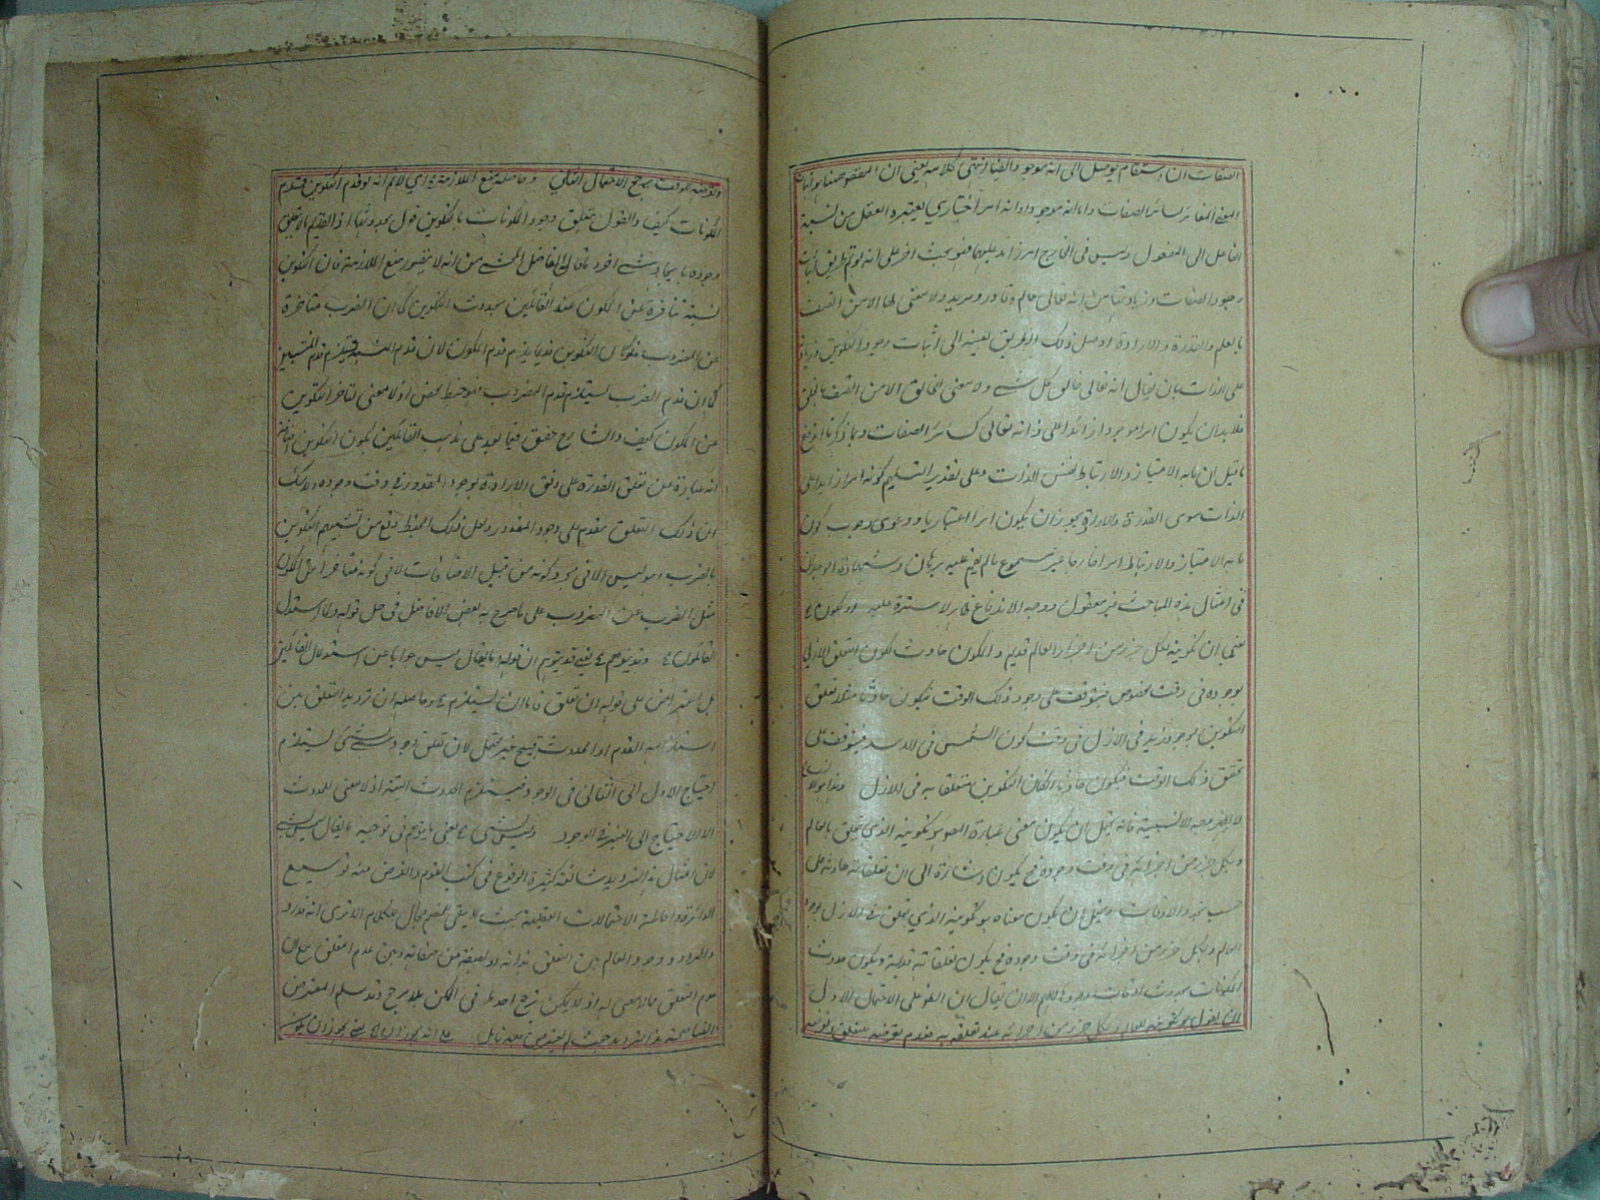 الصفات ان استقام يوصل الى انه موجود ايضا انتهى كلامه يعني ان المقصود ههنا اثبات
المعنى المغائر لسائر الصفات واما انه موجود او انه امر اعتباري يعتبره العقل من نسبة
الفاعل الى المفعول وليس في الخارج امر زائد عليهما فهو بحث اخر على انه لو تم طريق اثبات
وجود الصفات وزيادتها من انه تعالى عالم وقادر ومريد ولا معنى لها الا من اتصف
بالعلم والقدرة والارادة لدل ذلك الطريق بعينه الى اثبات وجود التكوين وزيادته
على الذات بان يقال انه تعالى خالق كل شئ ولا معنى للخالق الا من اتصف بالخلق
فلا بد ان يكون امرا موجودا زائدا على ذاته تعالى كسائر الصفات وبما ذكرنا اندفع
ما قيل ان ما به الامتياز والارتباط نفس الذات وعلى تقدير التسليم كونه امرا زائدا على
الذات سوى القدرة والارادة يجوز ان يكون امرا اعتباريا ودعوى وجوب كون
ما به الامتياز والارتباط امرا خارجا غير مسموع ما لم يقم عليه برهان وشهادة الوجدان
في امثال هذه المباحث غير معقول ووجه الاندفاع ظاهر لا سترة عليه
يعني ان تكوينه لكل جزء من اجزاء العالم قديم والمكون حادث لكون التعلق الازلي
بوجوده في وقت مخصوص فيتوقف على وجود ذلك الوقت فيكون حادثا مثلا تعلق
التكوين بوجود زيد في الازل في وقت كون الشمس في الاسد فيتوقف على
تحقق ذلك الوقت فيكون حادثا لكان التكوين متعلقا به في الازل
فانه يحتمل ان يكون معنى عبارة المص هو تكوينه الذي تعلق بالعالم
وبكل جزء من اجزائه في وقت وجوده فح يكون اشارة الى ان تعلقاته حادثة على
حسب تجدد الاوقات ويحتمل ان يكون معناه هو تكوينه الذي تعلق في الازل بوجود
العالم وبكل جزء من اجزائه في وقت وجوده فح يكون تعلقاته قديمة ويكون حدوث
المكونات بحدوث اوقات وجودها اللهم الا ان يقال ان القول على الاحتمال الاول
ان يقول هو تكوينه للعالم ولكل جزء من اجزائه عند تعلقه به فعدم تعرضه للتعلق وتعرضه
وتوقيته الوقت يرجح الاحتمال الثاني وحاصله منع الملازمة اي لا نم انه لو قدم التكوين قدم
المكونات كيف والقول بتعلق وجود المكونات بالتكوين قول بحدوثها اذ القديم ما لا يتعلق
وجوده بايجاد شئ اخر قال الفاضل المحشي انه لا يتصور منع الملازمة فان التكوين
نسبة متأخرة عن المكون عند القائلين بحدوث التكوين كما ان الضرب متأخرة
عن المضروب فلو كان التكوين قديما يلزم قدم المكون لان قدم النسبة يستلزم قدم المنتسبين
كما ان قدم الضرب يستلزم قدم المضروب وهو خبط محض اذ لا معنى لتأخر التكوين
عن المكون كيف والشارح حقق فيما بعد على مذهب القائلين بكون التكوين
انه عبارة عن تعلق القدرة على وفق الارادة بوجود المقدور في وقت وجوده ولا شك
ان ذلك التعلق مقدم على وجود المقدور ولعل ذلك الخبط وقع من تشبيهم التكوين
بالضرب وهو ليس الا في مجرد كونه من قبيل الاضافات لا في كونه متأخرا عن المكون
مثل الضرب عن المضروب على ما صرح به بعض الافاضل في حل قوله ولما استدل
القائلون وقد يتوهم يعني قد يتوهم ان قوله ما يقال ليس جوابا عن استدلال القائلين
بل اعتراض على قوله ان تعلق فاما ان يستلزم وحاصله ان ترديد التعلق بين
استلزامه القدم او الحدوث قبيح غير محتمل لان تعلق وجود شئ بشئ يستلزم
احتياج الاول الى الثاني في الوجود فيستلزم الحدوث البتة اذ لا معنى للحدوث
الا الاحتياج الى الغير في الوجود وليس بشئ يعني ما يتوهم في توجيه ما يقال ليس بشئ
لان امثال هذا الترديد شائعة كثيرة الوقوع في كتب القوم والغرض منه توسيع
الدائرة واحاطة الاحتمالات العقلية بحيث لا يبقى للخصم مجال للكلام الا ترى انه قد ردد
والدواد وجود العالم بين التعلق بذاته او لصفة من صفاته وبين عدم التعلق مع ان
عدم التعلق مما لا معنى له اذ لا يمكن ترجح احد طرفي الممكن بلا مرجح وقد سلم المعترض
ايضا صحة هذا الترديد حيث لم يعترض عليه تأمل على انه يجوز ان يعني يجوز ان يكون